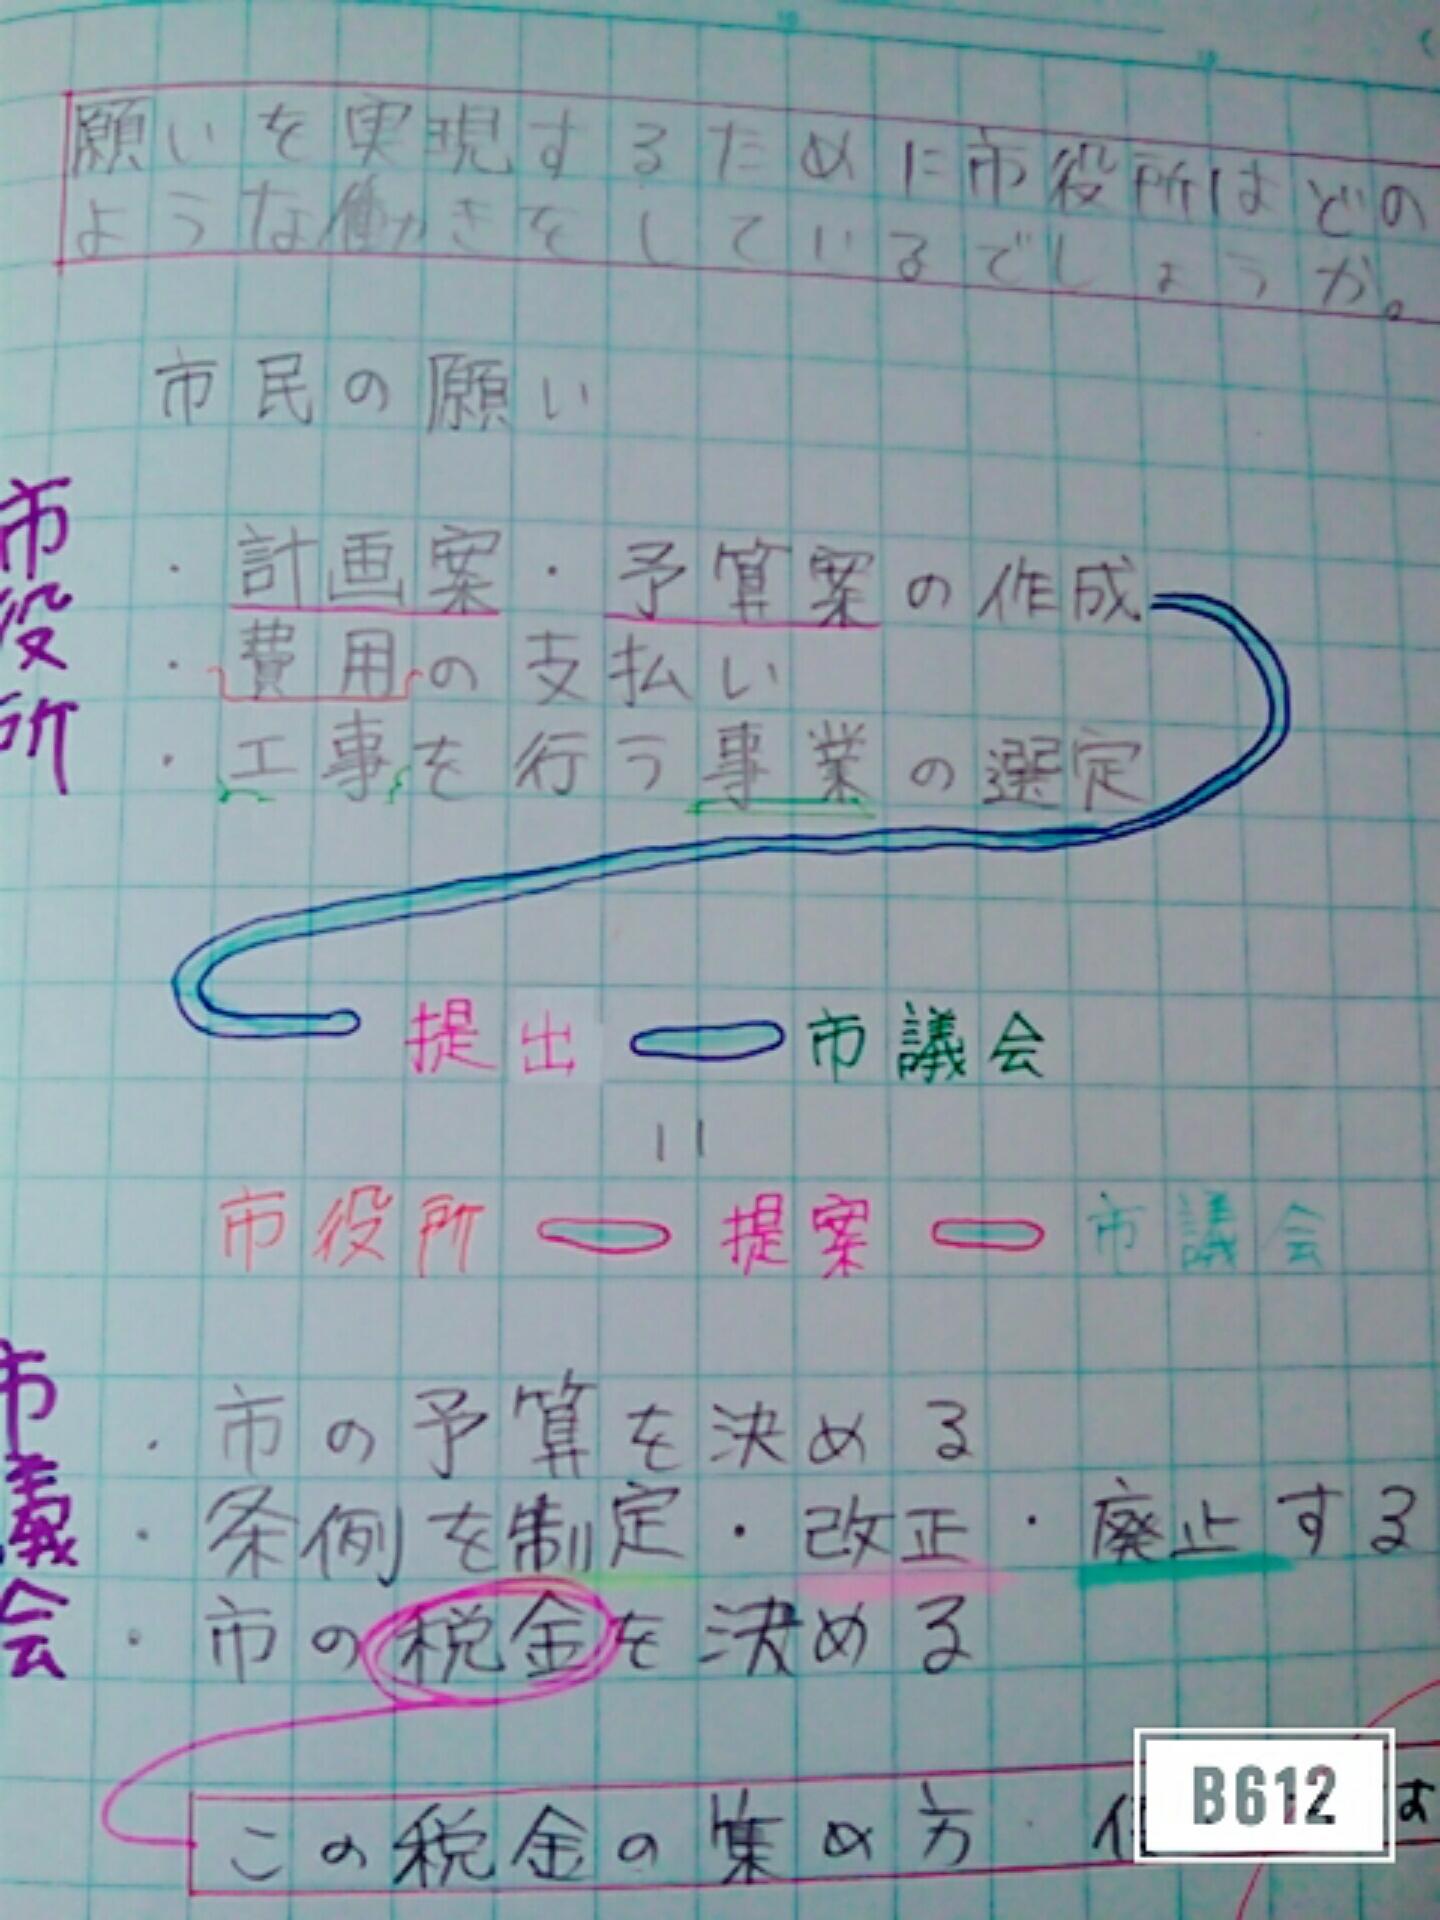 願いを実現するために市役所はどの
ような働きをしているでしょうか。
市民の願い
市役所
・計画案・予算案の作成
・費用の支払い
・工事を行う事業の選定
提出 市議会
市役所 提案 市議会
市議会
・市の予算を決める
・条例を制定・改正・廃止する
・市の税金を決める
この税金の集め方・
B612